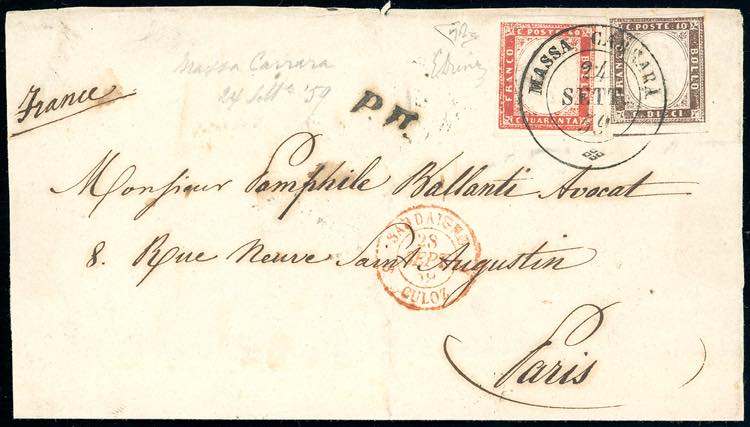 C. POSTE 40
FRANCO
BOLLO
C. QUARANTA
C. POSTE 10
FRANCO
BOLLO
C. DIECI
MASSA CARRARA
24
SETT
59
Massa Carrara
24 Sett.e '59
France
P.D.
Monsieur Pamphile Ballanti Avocat
8. Rue Neuve Saint Augustin
Paris
28
SEPT
59
CULOZ